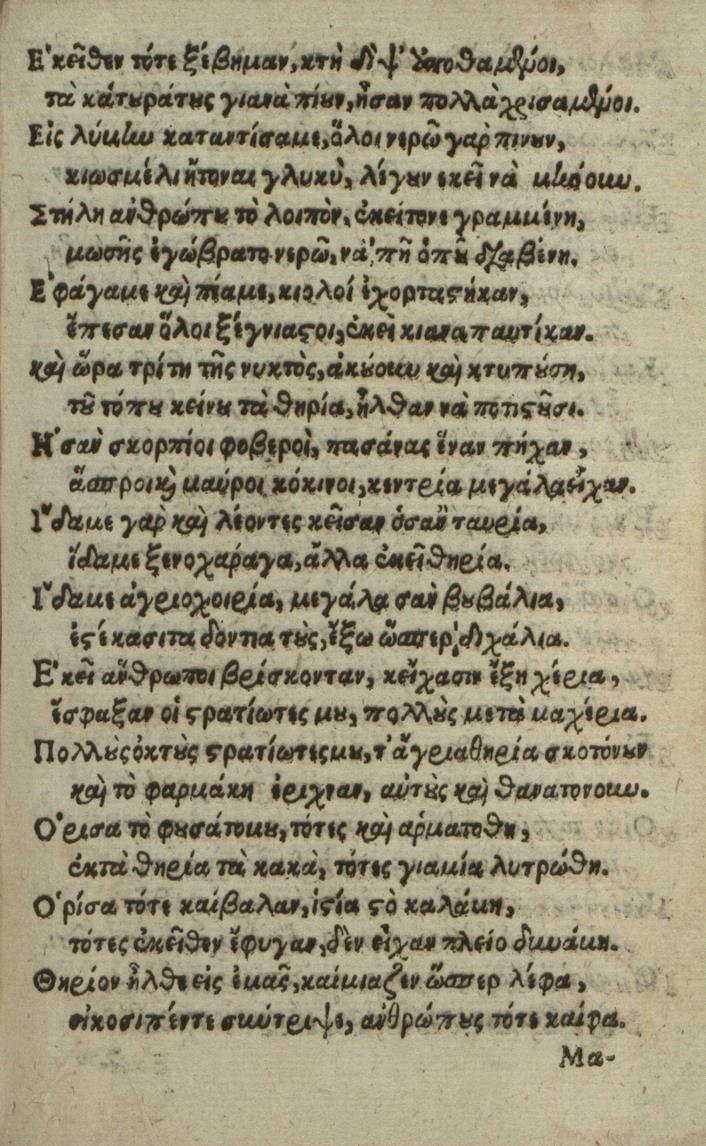 Ε'κεῖθεν τότε ξέβημαν, κτὴ δίψ' ὑποθαμῥύοι,
τὰ κάτȣράτȣς γιανὰ πίȣν, ἦσαν πολλὰ χρισαμῥύοι.
Εἰς λύκἰω καταντίσαμε, ὅλοι νερῶ γαρ πινȣν,
κιωσμέλι ἤτοναι γλυκὺ, λέγȣν ἐκεῖ νὰ
Στήλη ἀνθρώπȣ τὸ λοιπὸν, ἐκείτονε γραμμένη,
μωσῆς ἐγώβρατο νερῶ, νὰ πῆ ὁπȣ͂ διαβένη.
Ε'φάγαμε καὶ πίαμε, κιολοί ἐχορταςήκαν,
ἔπεσαν ὅλοι ξέγνιαςοι, ἐκεὶ κιαναπαυτίκαν.
καὶ ὥρα τρίτη τῆς νυκτὸς, ἀκȣ́ομω καὶ κτυπȣ́ση,
τȣ͂ τόπȣ κείνȣ τὰ θηρία, ἦλθαν νὰ ποτιςȣ͂σι.
Η'σαν σκορπίοι φοβεροὶ, πασάνας ἕναν πήχαν,
ἄσπροι κὴ μαύροι κόκινοι, κεντρία μεγάλα εἶχαν.
Ι"δαμε γαρ καὶ λέοντες κεῖσαν ὁσαν ταυρία,
ἴδαμε ξενοχάραγα, ἄλλα ἐκεῖ θηρία.
Ι"δαμε ἀγριοχοιρία, μεγάλα σαν βȣβάλια,
ἐςέκασιτα δόντια τȣς, ἔξω ὥσπερ διχάλια.
Ε'κεῖ ἄνθρωποι βρίσκονταν, κεἶχασιν ἔξη χέρια,
ἔσφαξαν οἱ ςρατίωτες μȣ, πολλȣ̀ς μετὰ μαχέρια.
Πολλȣ̀ς ὀκτȣ̀ς ςρατίωτες μȣ, τ'ἄγρια θηρία σκοτόνȣν
καὶ τὸ φαρμάκη ἐριχναν, αὐτȣ̀ς καὶ θανατονομω.
Ο'ρισα τὸ φȣσάτομȣ, τότες καὶ αρματοθη,
ἐκτὰ θηρία τὰ κακὰ, τότες γιαμία λυτρώθη.
Ο'ρίσα τότε καίβαλαν, ἱςία ςὸ καλάμη,
τότες ἐκεῖθεν ἔφυγαν, δὲν εἶχαν πλείο διωάμη.
Θηρίον ἦλθε εἰς ἐμᾶς, καίμιαζεν ὥσπερ λέφα,
εἰκοσιπέντε σκύτριψε, ανθρώπȣς τότε καίφα.
Μα-